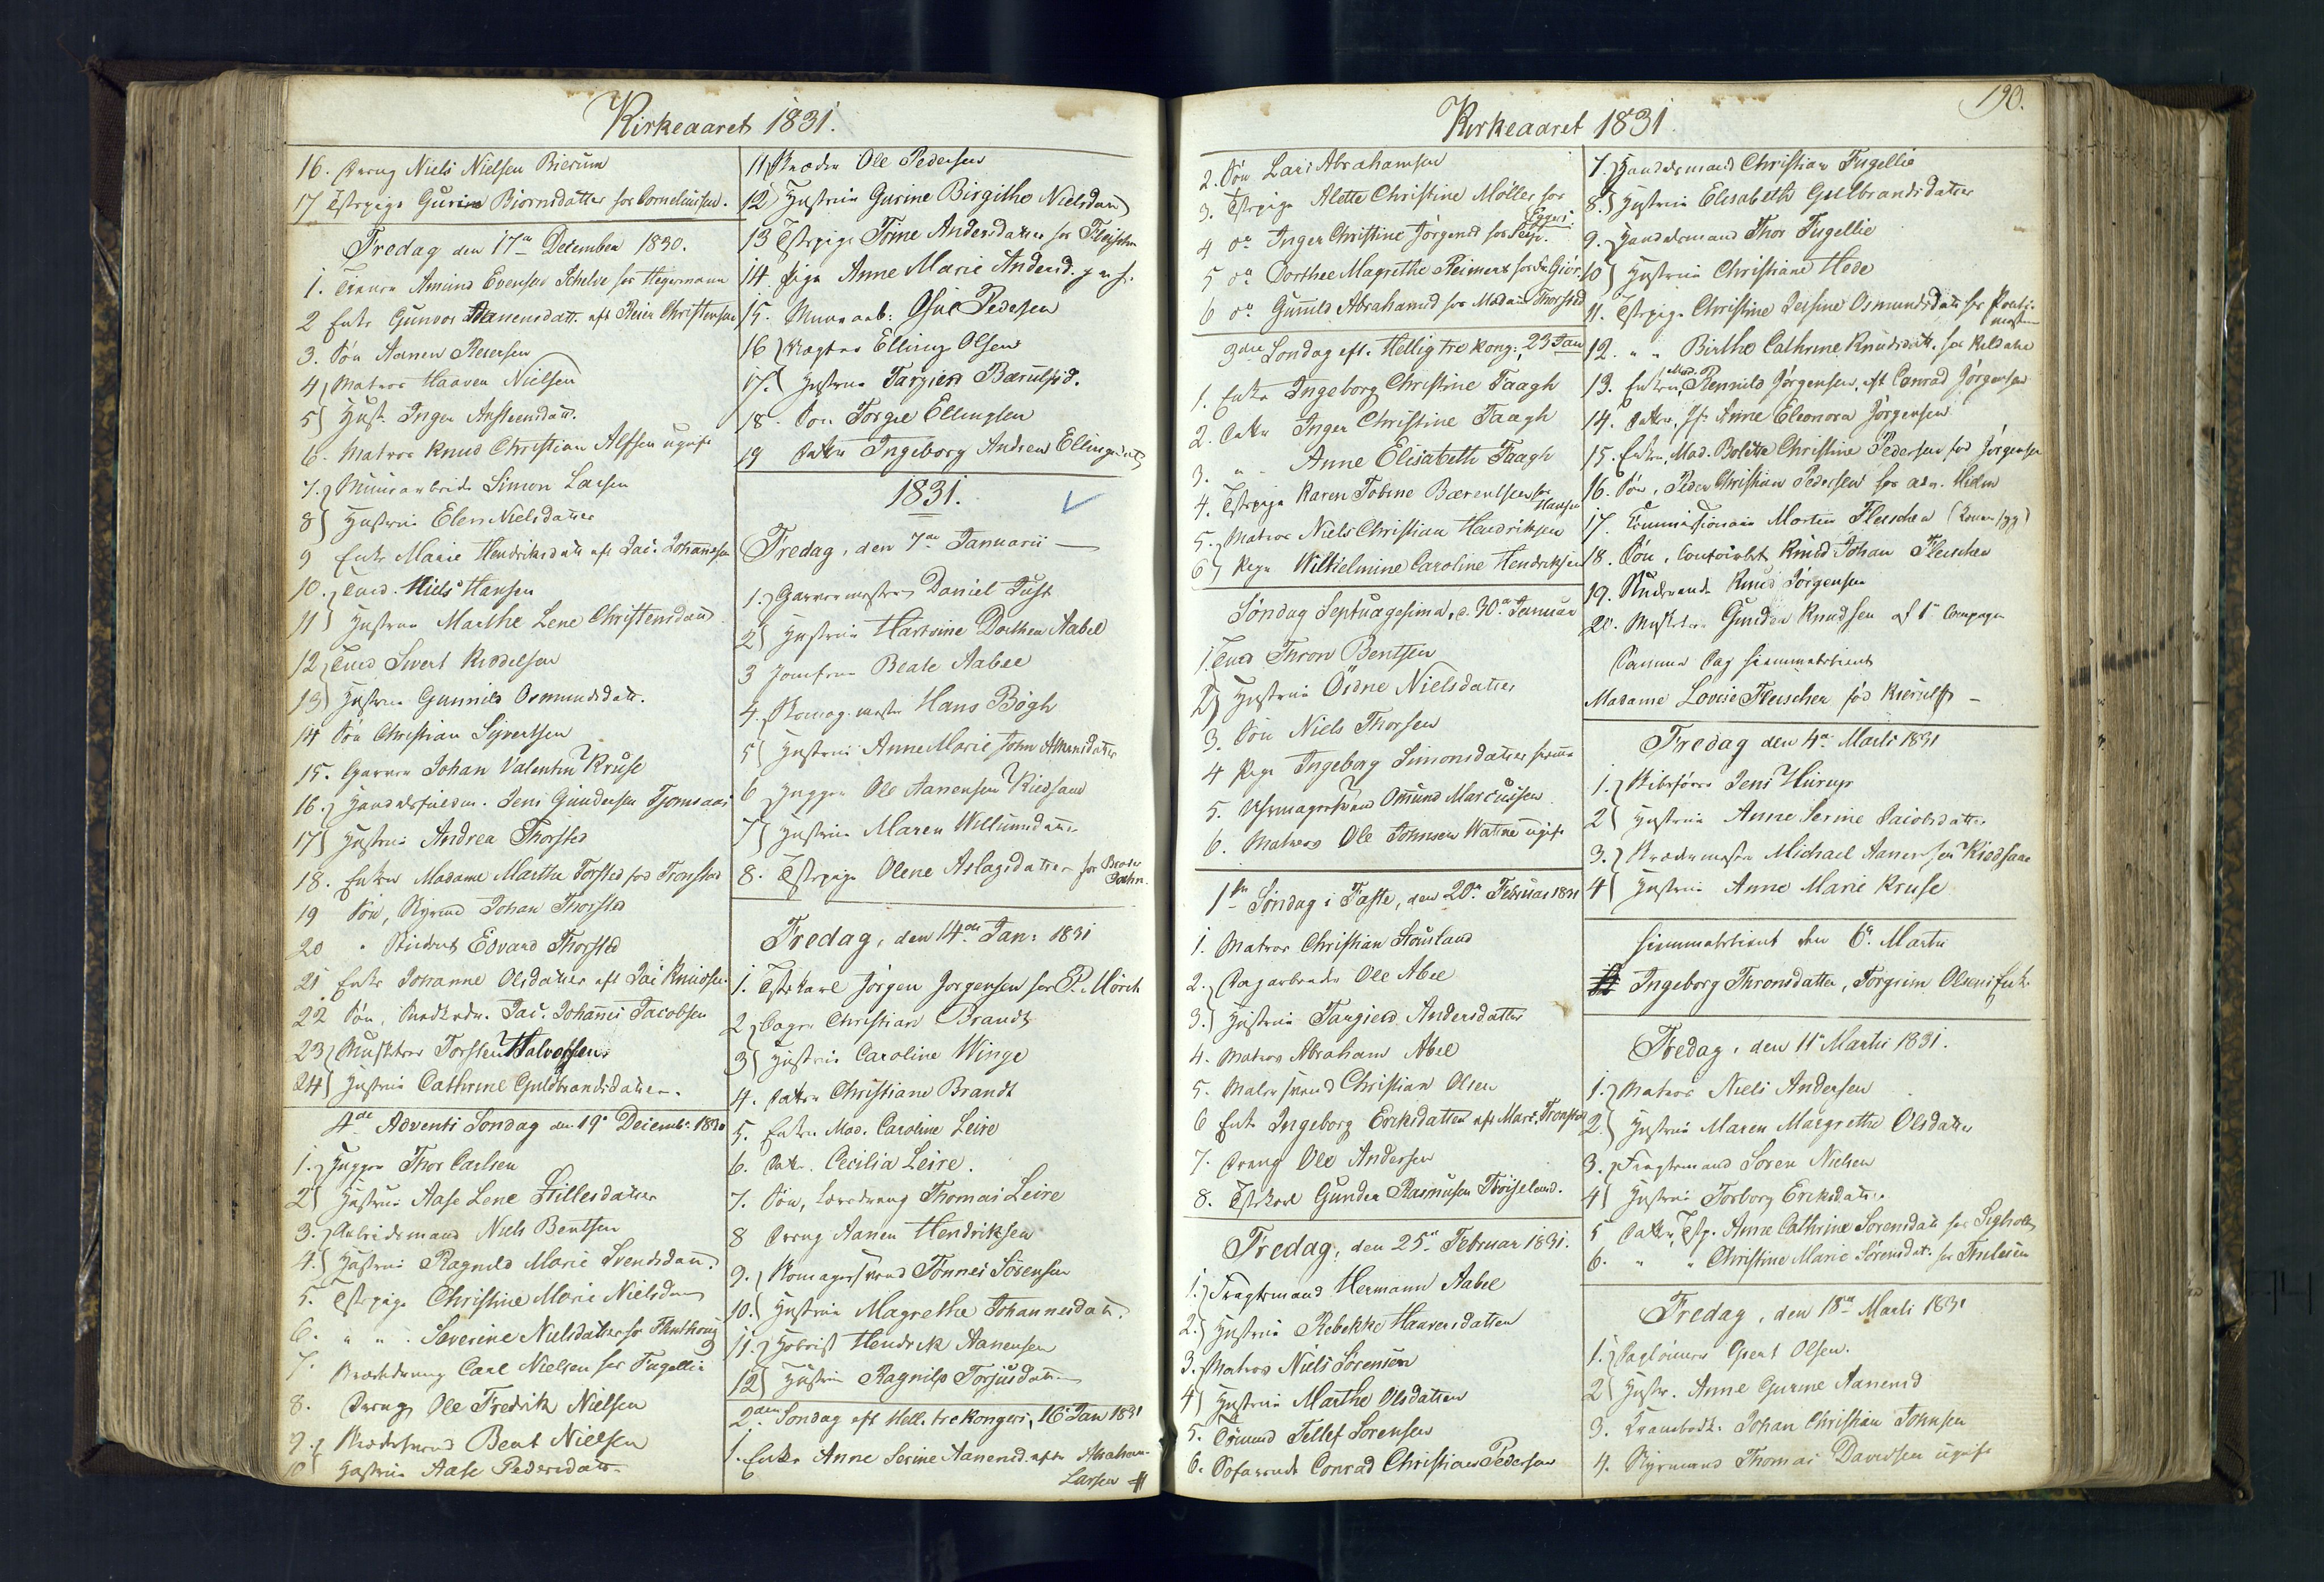 Kirkeaaret 1831.
16. Dreng Niels Nielsen Bierum
17 Tstpige Gurine Biornsdatter hos Corneliusen.
Fredag den 17de December 1830.
1. Amund Evensen hos Hegermann
2 Enke Gunvor Aanensdatt. eft Reier Christensen
3. Søn Aanen Reiersen
4 Matros Haaven Nielsen
5 Hust. Inger Ansteensdatt.
6. Matros Knud Christian Alfsen ugift
7. Simon Larsen
8 Hustrue Elen Nielsdatter
9 Enke Marie Hendriksdatt eft Jac. Johannesen
10. Niels Hansen
11 Hustrue Marthe Lene Christensdatt
12 Sivert Kiddelsen
13 Hustrue Gunnild Osmundsdatt.
14 Søn Christian Sijvertsen
15. Garver Johan Valentin Kruse
16. Jens Gundersen Tjomsaas
17 Hustrue Andrea Thorsted
18. Enken Madame Marthe Torsted fød Tronstad
19 Søn, Styrmd Johan Thorsted
20 " Student Edvard Thorsted
21 Enke Johanne Olsdatter eft Jac Knudsen.
22 Søn, Jac. Johannes Jacobsen
23 Musketeer Torsten Halvorsen.
24 Hustrue Cathrine Guldbrandsdatter.
4de Advents Søndag den 19de Decemb. 1830
1. Thor Carlsen
2 Hustrue Aase Lene Stillesdatter
3. Arbeidsmand Niels Bentsen
4. Hustrue Ragnild Marie Svendsdatt.
5. Tstpige Christine Marie Nielsdatt
6. " " Severine Nielsdatter hos
7. Carl Nielsen hos Fugellie
8. Dreng Ole Fredrik Nielsen
9. Bent Nielsen
10 Hustrue Aase Pedersdatt.
11 Ole Pedersen
12 Hustrue Gurine Birgithe Nielsdatt
13 Tstpige Trine Andersdatter hos Fleischer
14 Pige Anne Marie Andersd.
15. Murarb: Ole Pedersen
16 Vægter Elling Olsen
17. Hustrue Targierd Bærulfsd.
18. Søn Torger Ellingsen
19 Datter Ingeborg Andrea Ellingsdatt
1831.
Fredag, den 7de Januarii
1. Garvermester Daniel Tust
2 Hustrue Hartvine Dorthea Aabel
3 Jomfrue Beate Aabel
4. Skomag. mester Hans Bøgh
5 Hustrue Anne Marie John Amensdatter
6 Ole Aanensen Kiedsand
7 Hustrue Maren Willumsdatter
8. Tstpige Olene Aslagsdatter hos
Fredag, den 14de Jan: 1831
1. Tstkarl Jørgen Jorgensen hos P. Mörch
2 Bager Christian Brandt
3 Hustrue Caroline Winge
4. Datter Christiane Brandt
5. Enken Mad. Caroline Leire
6. Datt. Cecilia Leire.
7. Søn, Thomas Leire
8 Dreng Aanen Hendriksen
9. Skomagersvend Tønnes Sörensen
10. Hustrue Magrethe Johannesdatt.
11. Hendrik Aanensen
12 Hustrue Ragnild Torjusdatter
2den Søndag eft Hell. tre Kongers, 16de Jan 1831
1. Enke Anne Serine Aanensd. efter Abraham
Larsen
Kirkeaaret 1831
190.
2. Søn Lars Abrahamsen
3. Tstpige Alette Christine Møller hos
Eggers
4 do Inger Christine Jørgensd hos
5 do Dorthee Magrethe Reimert hos
6 do Gunild Abrahamsd hos Madam Thorsted
3die Søndag eft. Hellig tre Kong:, 23 Jan
1. Enke Ingeborg Christine Taagh
2. Datter Inger Christine Taagh
3. " " Anne Elisabeth Taagh
4. Tstpige Karen Tobine Bærentsen hos
Hansen
5. Matros Niels Christian Hendriksen
6 Pige Wilhelmine Caroline Hendriksen
Søndag Septuagesima, d. 30de Januar
1. Thron Bentsen
2 Hustrue Ödne Nielsdatter
3. Søn Niels Thorsen
4 Pige Ingeborg Simonsdatter
5. Uhrmagersvend Omund Marcussen
6. Matros Ole Johnsen Watne ugift
1ste Søndag i Faste, den 20de Februar 1831
1. Matros Christian Stousland
2. Dagarbeider Ole Abel
3. Hustrue Targierd Andersdatter
4. Matros Abraham Abel
5. Malersvend Christian Olsen
6 Enke Ingeborg Eriksdatter eft Mart. Tronstad
7. Dreng Ole Andersen
8. Tstkarl Gunder Rasmusen Tröiseland.
Fredag, den 25de Februar 1831.
1. Fragtemand Hermann Aabel
2. Hustrue Rebekke Haavensdatter
3. Matros Niels Sörensen
4 Hustrue Marthe Olsdatter
5. Tellef Sorensen
6. Conrad Christian Pedersen
7. Handelsmand Christian Fugellie
8. Hustrue Elisabeth Gulbrandsdatter
9. Handelsmand Thor Fugellie
10 Hustrue Christiane Hede
11. Tstpige Christine Jersine Osmundsdatt hos
12. " " Birthe Cathrine Knudsdatt. hos
13. Enken, Mad. Rennild Jørgensen, eft Conrad Jørgensen
14. Datter, Jf. Anne Eleonora Jörgensen
15. Enken, Mad. Bolette Christine Pedersen fød Jørgensen
16. Søn, Peder Christian Pedersen hos
17. Commissionair Morten Fleischer
18. Søn, Contoirbet. Knud Johan Fleischer
19. Knud Jørgensen
20. Musketeer Gunder Knudsen af 1ste Compagn
Samme Dag hiemmebetient
Madame Lovise Fleischer fød Kierulf
Fredag den 4de Marti 1831
1. Skibsfører Jens Hurup
2 Hustrue Anne Serine Jacobsdatter
3. Michael Aanensen Kiedsand
4 Hustrue Anne Marie Kruse
Hiemmebetient den 6te Martii
Ingeborg Thronsdatter, Torgrim Olsens Enke.
Fredag, den 11te Martii 1831.
1. Matros Niels Andersen
2. Hustrue Maren Margrethe Olsdatter
3. Fragtemand Soren Nielsen
4 Hustrue Torborg Eriksdatter.
5 Datter, Tstp. Anne Cathrine Sorensdatt hos
6. " " Christine Marie Sörensdat. hos
Fredag, den 18de Marti 1831
1. Dagleiner Gjert Olsen.
2 Hustr. Anne Gurine Aanensd
3. Krambodk. Johan Christian Johnsen
4. Styrmand Thomas Davidsen ugift